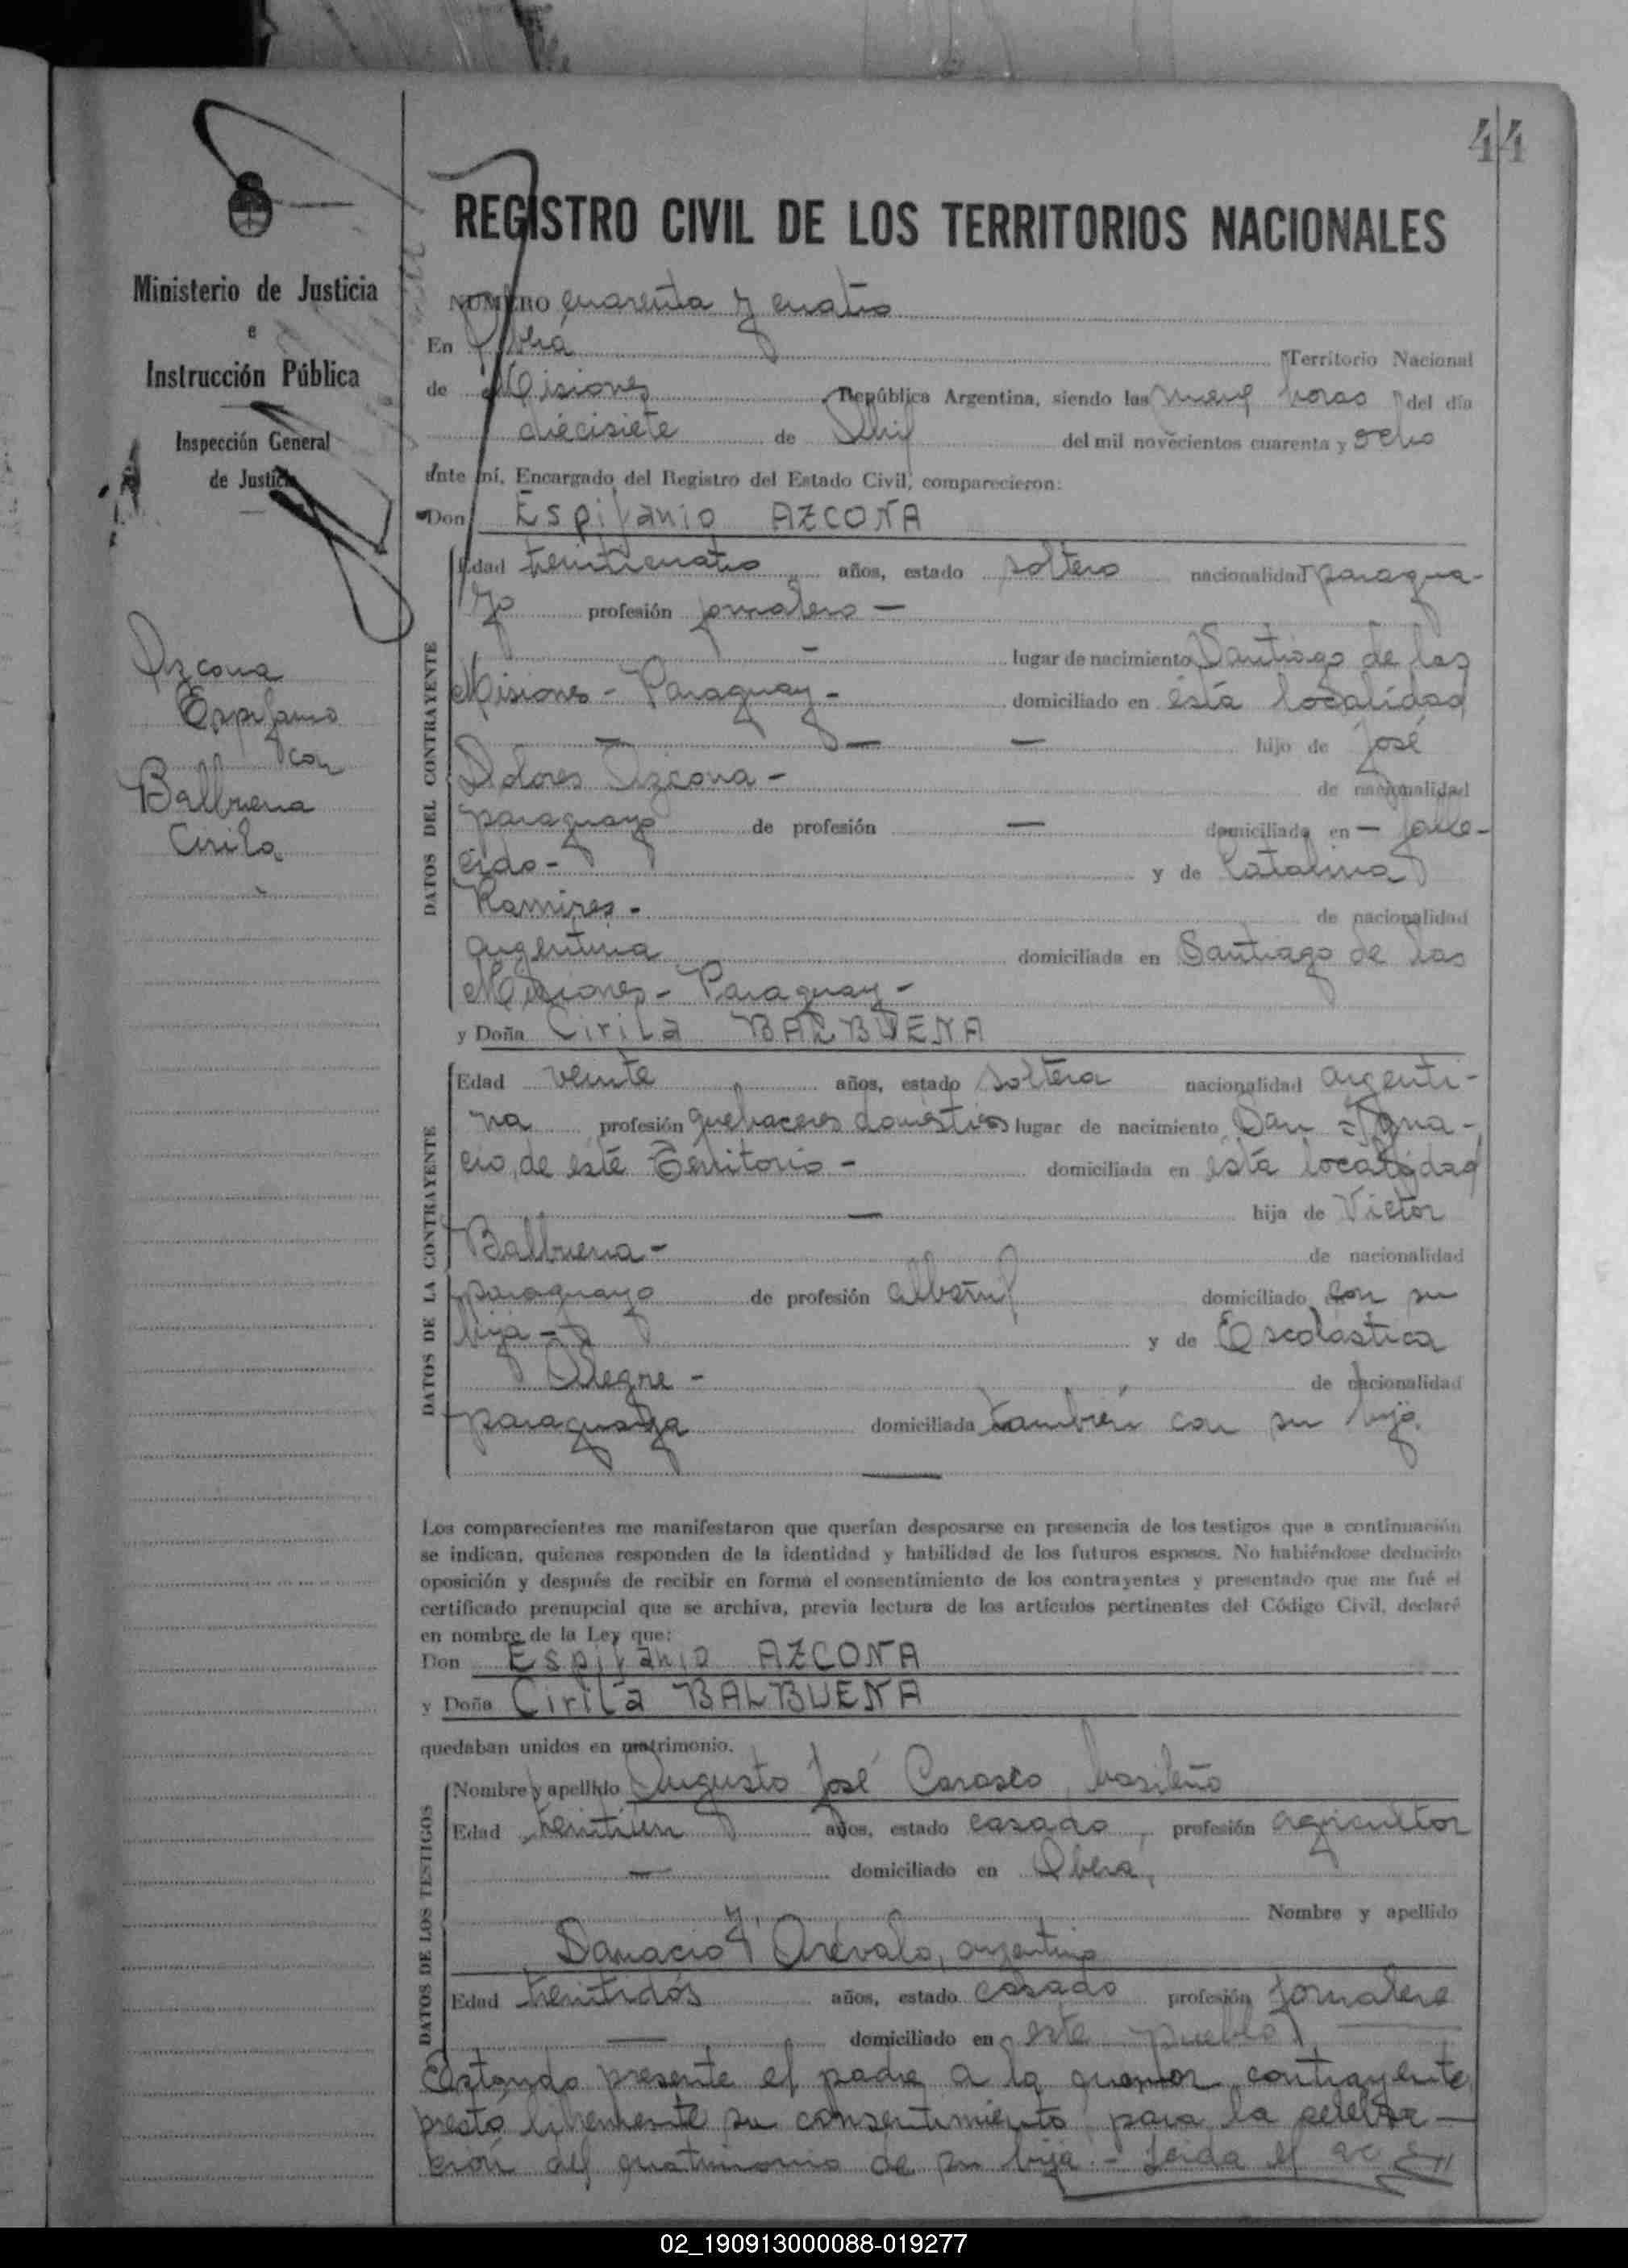 44
REGISTRO CIVIL DE LOS TERRITORIOS NACIONALES
Ministerio de Justicia
e
Instrucción Pública
Inspección General
de Justicia
Azcona
Espifanio
con
Balbuena
Cirila
NÚMERO cuarenta y cuatro
En Oberá Territorio Nacional
de Misiones República Argentina, siendo las nueve horas del día
diecisiete de Abril del mil novecientos cuarenta y ocho
Ante mí, Encargado del Registro del Estado Civil, comparecieron:
Don Espifanio AZCONA
DATOS DEL CONTRAYENTE
Edad treinticuatro años, estado soltero nacionalidad paragua-
yo profesión jornalero —
— lugar de nacimiento Santiago de las
Misiones - Paraguay - domiciliado en ésta localidad
— — — hijo de José
Dolores Azcona - de nacionalidad
paraguayo de profesión — domiciliado en — falle-
cido - y de Catalina
Ramires - de nacionalidad
argentina domiciliada en Santiago de las
Misiones - Paraguay -
y Doña Cirila BALBUENA
DATOS DE LA CONTRAYENTE
Edad veinte años, estado soltera nacionalidad argenti-
na profesión quehaceres domésticos lugar de nacimiento San Igna-
cio, de éste Territorio - domiciliada en ésta localidad
— hija de Victor
Balbuena - de nacionalidad
paraguayo de profesión albañil domiciliado con su
hija - y de Escolástica
Alegre - de nacionalidad
paraguaya domiciliada también con su hija.
Los comparecientes me manifestaron que querían desposarse en presencia de los testigos que a continuación
se indican, quienes responden de la identidad y habilidad de los futuros esposos. No habiéndose deducido
oposición y después de recibir en forma el consentimiento de los contrayentes y presentado que me fué el
certificado prenupcial que se archiva, previa lectura de los artículos pertinentes del Código Civil, declaré
en nombre de la Ley que:
Don Espifanio AZCONA
y Doña Cirila BALBUENA
quedaban unidos en matrimonio.
DATOS DE LOS TESTIGOS
Nombre y apellido Augusto José Carasco, brasileño
Edad treintiun años, estado casado, profesión agricultor
— domiciliado en Oberá,
y, Nombre y apellido
Damacio Arévalo, argentino
Edad treintidós años, estado casado profesión jornalero
— domiciliado en este pueblo
Estando presente el padre a la menor contrayente
prestó libremente su consentimiento para la celebra-
ción del matrimonio de su hija. - Leida el ac
02_190913000088-019277